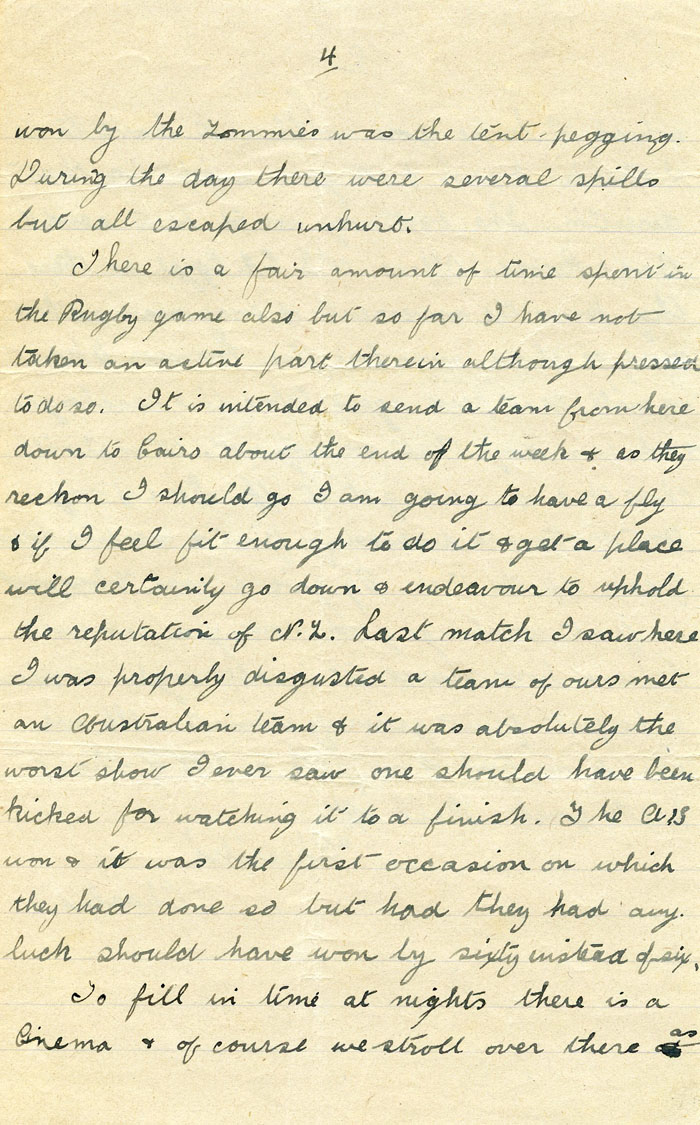 4
won by the Tommies was the tent-pegging.
During the day there were several spills
but all escaped unhurt.
There is a fair amount of time spent in
the Rugby game also but so far I have not
taken an active part therein although pressed
to do so. It is intended to send a team from here
down to Cairo about the end of the week & as they
reckon I should go I am going to have a fly
& if I feel fit enough to do it & get a place
will certainly go down & endeavour to uphold
the reputation of N.Z. Last match I saw here
I was properly disgusted a team of ours met
an Australian team & it was absolutely the
worst show I ever saw one should have been
kicked for watching it to a finish. The
won & it was the first occasion on which
they had done so but had they had any
luck should have won by sixty instead of six.
To fill in time at nights there is a
Cinema & of course we stroll over there as